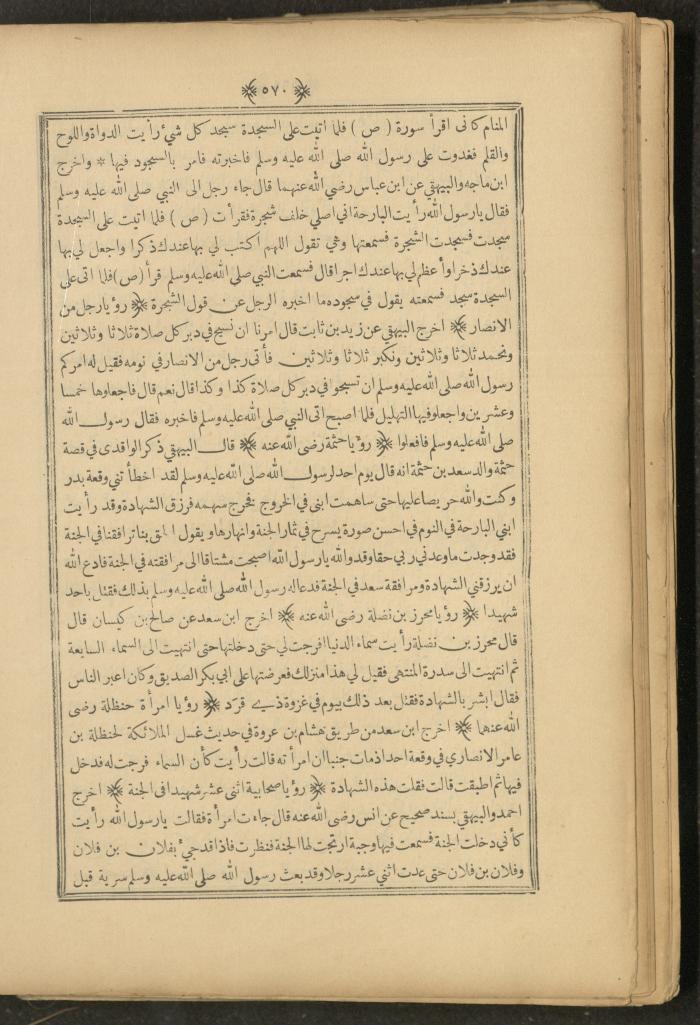 ﴿ ٥٧٠ ﴾
المنام كأنى اقرأ سورة ( ص ) فلما اتيت على السجدة سجد كل شئ رأيت الدواة واللوح
والقلم فغدوت على رسول الله صلى الله عليه وسلم فاخبرته فامر بالسجود فيها * واخرج
ابن ماجه والبيهقي عن ابن عباس رضي الله عنهما قال جاء رجل الى النبي صلى الله عليه وسلم
فقال يارسول الله رأيت البارحة اني اصلي خلف شجرة فقرأت ( ص ) فلما اتيت على السجدة
سجدت فسجدت الشجرة فسمعتها وهي تقول اللهم اكتب لي بها عندك ذكرا واجعل لي بها
عندك ذخرا وأعظم لي بها عندك اجرا قال فسمعت النبي صلى الله عليه وسلم قرأ (ص) فلما اتى على
السجدة سجد فسمعته يقول في سجوده ما اخبره الرجل عن قول الشجرة ﴿ رؤيا رجل من
الانصار ﴾ اخرج البيهقي عن زيد بن ثابت قال امرنا ان نسبح في دبر كل صلاة ثلاثا وثلاثين
ونحمد ثلاثا وثلاثين ونكبر ثلاثا وثلاثين فأتى رجل من الانصار في نومه فقيل له امركم
رسول الله صلى الله عليه وسلم ان تسبحوا في دبر كل صلاة كذا وكذا قال نعم قال فاجعلوها خمسا
وعشرين واجعلوا فيها التهليل فلما اصبح اتى النبي صلى الله عليه وسلم فاخبره فقال رسول الله
صلى الله عليه وسلم فافعلوا ﴿ رؤيا خثمة رضى الله عنه ﴾ قال البيهقي ذكر الواقدى في قصة
خثمة والد سعد بن خثمة انه قال يوم احد لرسول الله صلى الله عليه وسلم لقد اخطأتني وقعة بدر
وكنت والله حريصا عليها حتى ساهمت ابنى في الخروج فخرج سهمه فرزق الشهادة وقد رأيت
ابنى البارحة في النوم في احسن صورة يسرح في ثمار الجنة وانهارها ويقول الحق بنا ترافقنا في الجنة
فقد وجدت ما وعدني ربي حقا وقد والله يارسول الله اصبحت مشتاقا الى مرافقته في الجنة فادع الله
ان يرزقني الشهادة ومرافقة سعد في الجنة فدعاله رسول الله صلى الله عليه وسلم بذلك فقتل باحد
شهيدا ﴿ رؤيا محرز بن نضلة رضى الله عنه ﴾ اخرج ابن سعد عن صالح بن كيسان قال
قال محرز بن نضلة رأيت سماء الدنيا افرجت لي حتى دخلتها حتى انتهيت الى السماء السابعة
ثم انتهيت الى سدرة المنتهى فقيل لي هذا منزلك فعرضتها على ابي بكر الصديق وكان اعبر الناس
فقال ابشر بالشهادة فقتل بعد ذلك بيوم في غزوة ذى قرد ﴿ رؤيا امرأة حنظلة رضى
الله عنها ﴾ اخرج ابن سعد من طريق هشام بن عروة في حديث غسل الملائكة لحنظلة بن
عامر الانصاري في وقعة احد اذ مات جنبا ان امرأته قالت رأيت كأن السماء فرجت له فدخل
فيها ثم اطبقت قالت فقلت هذه الشهادة ﴿ رؤيا صحابية اثنى عشر شهيدا فى الجنة ﴾ اخرج
احمد والبيهقي بسند صحيح عن انس رضى الله عنه قال جاءت امرأة فقالت يارسول الله رأيت
كأني دخلت الجنة فسمعت فيها وجبة ارتجت لها الجنة فنظرت فاذا قد جيء بفلان بن فلان
وفلان بن فلان حتى عدت اثني عشر رجلا وقد بعث رسول الله صلى الله عليه وسلم سرية قبل